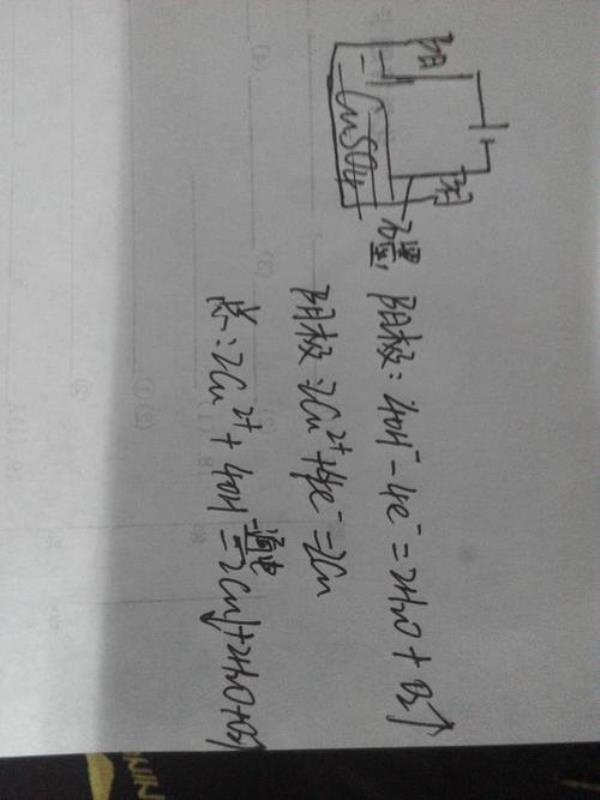 阳 阴
CuSO₄
石墨
阳极: 4OH⁻ - 4e⁻ = 2H₂O + O₂↑
阴极: 2Cu²⁺ + 4e⁻ = 2Cu
总: 2Cu²⁺ + 4OH⁻ 通电= 2Cu↓ + 2H₂O + O₂↑